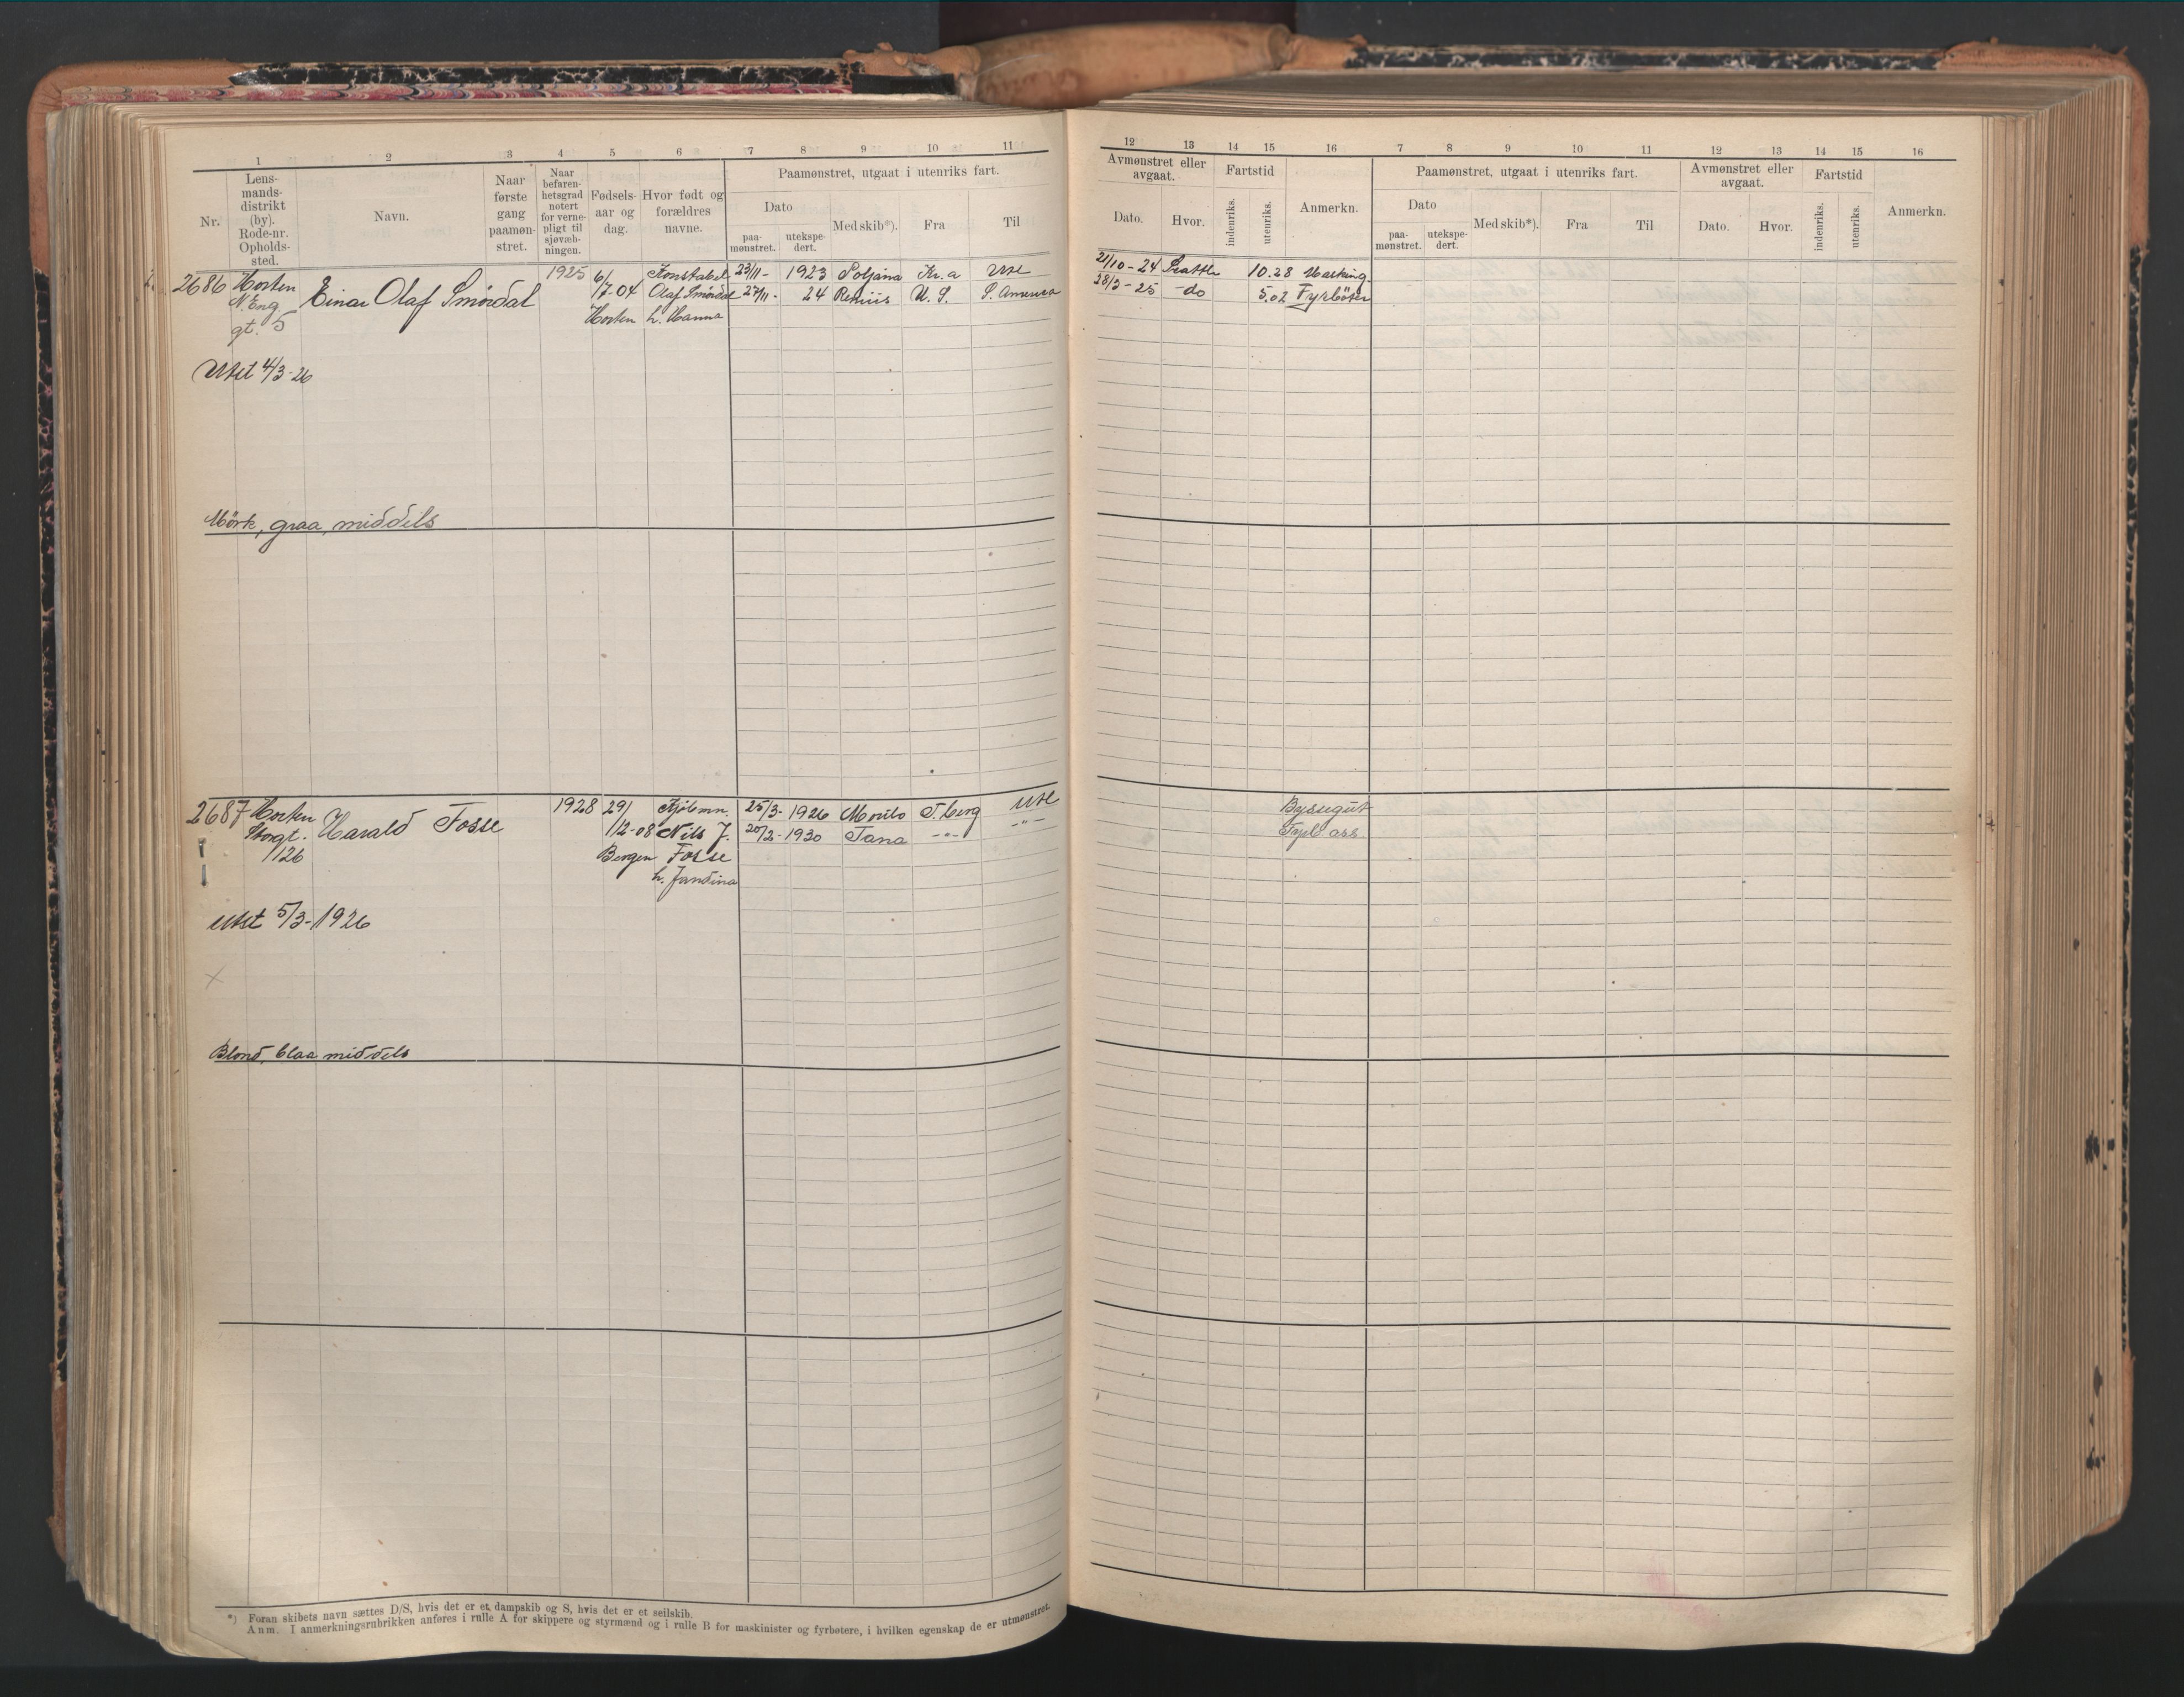 1 2 3 4 5 6 7 8 9 10 11
Nr.
Lens-
mands-
distrikt
(by).
Rode-nr.
Opholds-
sted.
Navn.
Naar
første
gang
paamøn-
stret.
Naar
befaren-
hetsgrad
notert
for verne-
pligt til
sjøvæb-
ningen.
Fødsels-
aar og
dag.
Hvor født og
forældres
navne.
Paamønstret, utgaat i utenriks fart.
Dato
paa-
mønstret.
utekspe-
dert.
Med skib*).
Fra
Til
2686 Horten Einar Olaf Smördal 1925 6/ Konstabel 23/11 - 1923 Poljana Kr.a Utl
N. Eng 7-04 Olaf Smördal 27/11 - 24 Remus U. S. S. America
gt. 5 Horten h. Hanna
Utst 4/3-26
Mörk, graa, middels
2687 Horten Harald Fosse 1928 29/ 25/3 - 1926 T.berg Utl
Storgt. 12-08 Nils J. 20/2 - 1930 Tana -"- -"-
126 Bergen Fosse
h. Jandina
Utst 5/3-1926
Blond, blaa middels
*) Foran skibets navn sættes D/S, hvis det er et dampskib og S, hvis det er et seilskib.
Anm. I anmerkningsrubrikken anføres i rulle A for skippere og styrmænd og i rulle B for maskinister og fyrbøtere, i hvilken egenskap de er utmønstret.
12 13 14 15 16 7 8 9 10 11 12 13 14 15 16
Avmønstret eller
avgaat.
Dato. Hvor.
Fartstid
indenriks.
utenriks.
Anmerkn.
Paamønstret, utgaat i utenriks fart.
Dato
paa-
mønstret.
utekspe-
dert.
Med skib*).
Fra
Til
Avmønstret eller
avgaat.
Dato. Hvor.
Fartstid
indenriks.
utenriks.
Anmerkn.
21/10-24 Seattle 10.28
28/3-25 do 5.02 Fyrböter
Byssegut